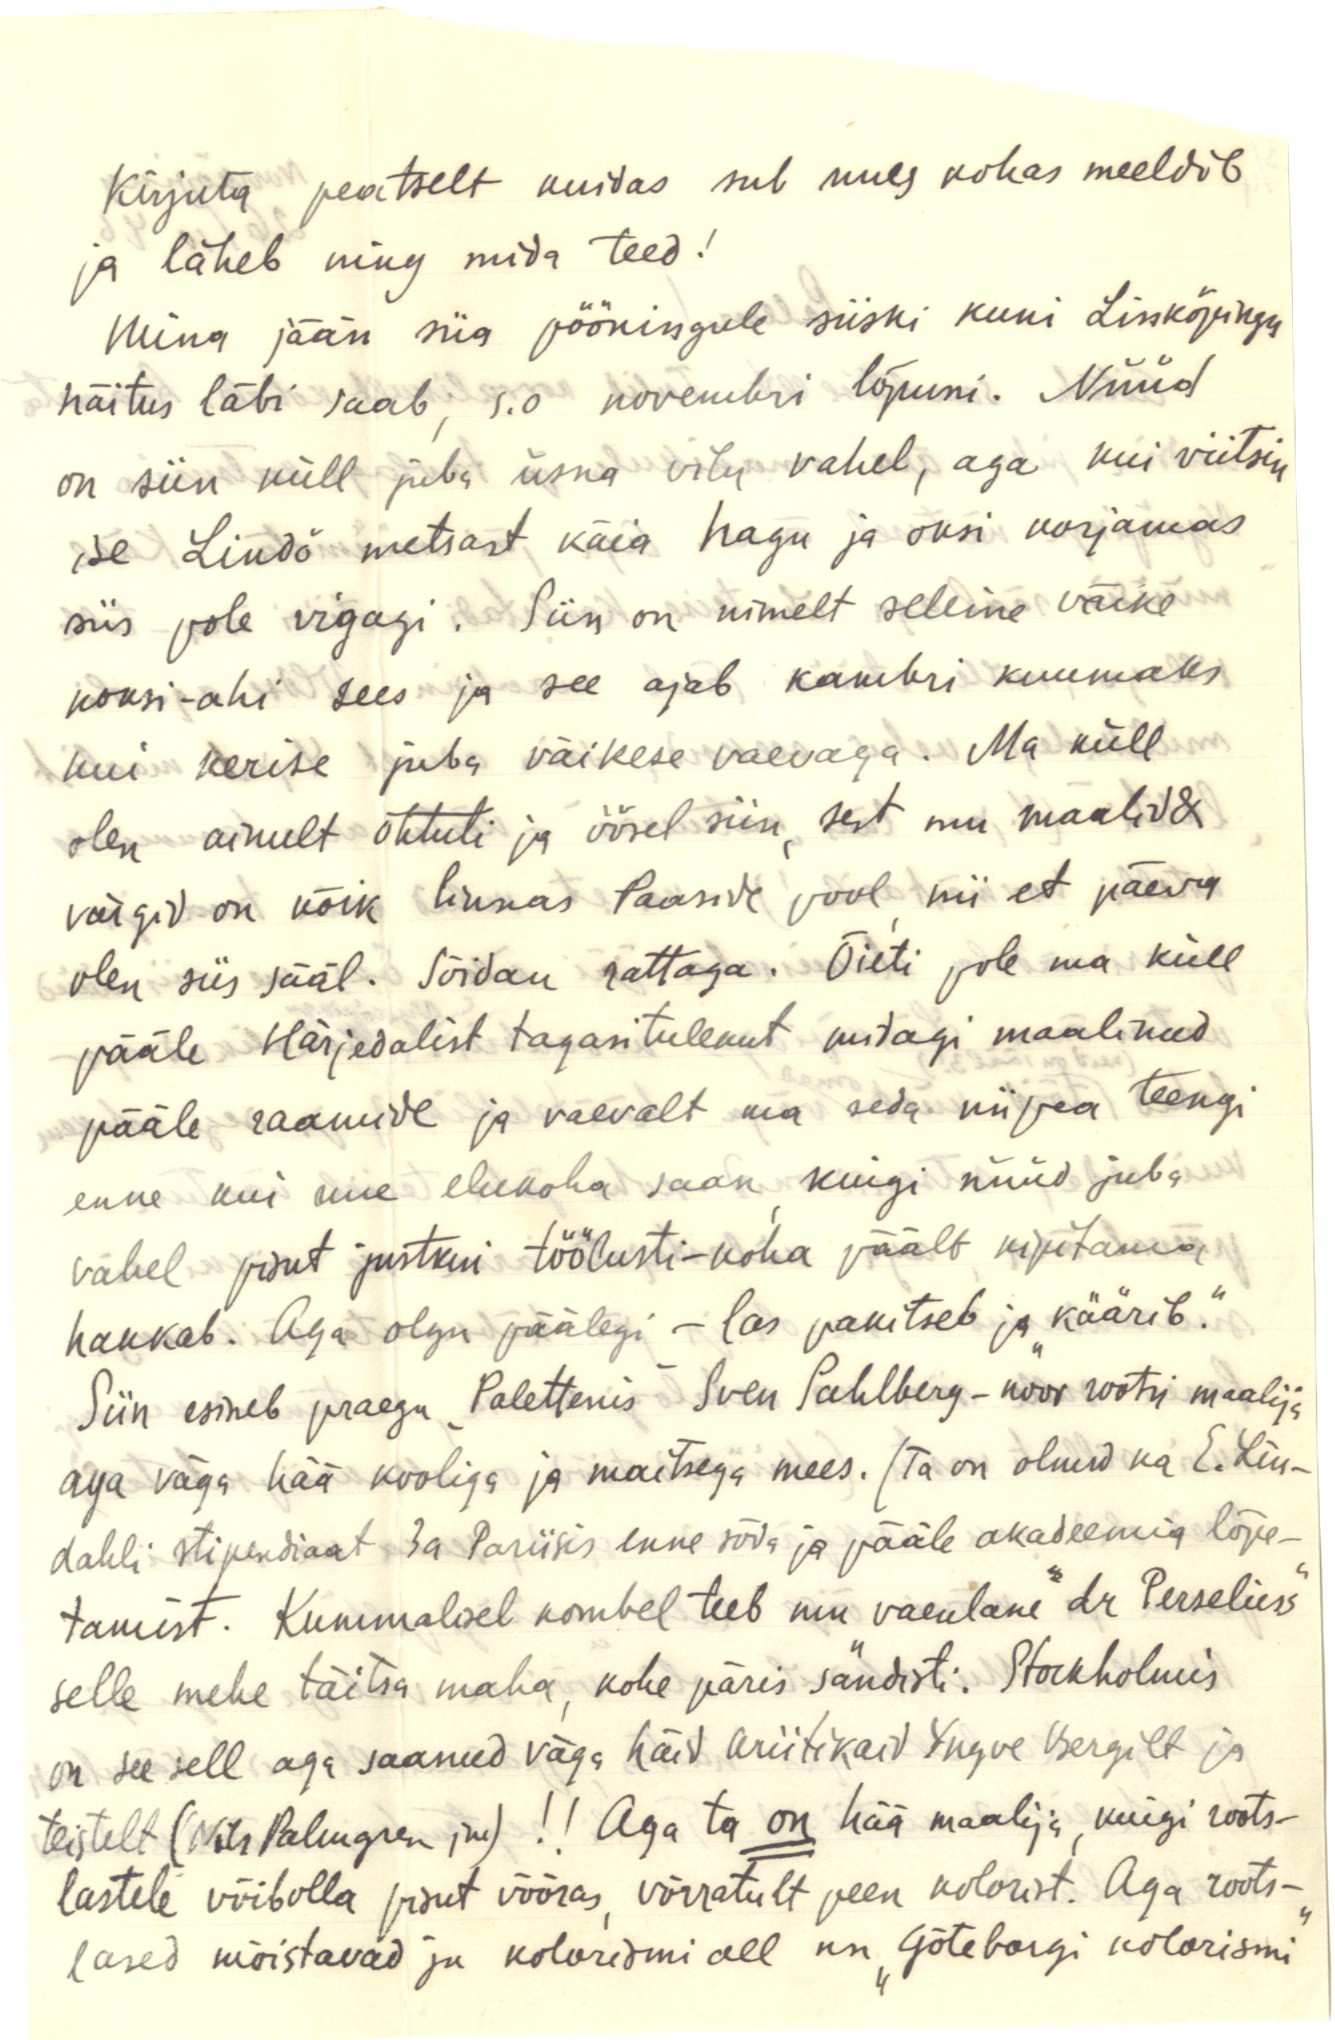 Kirjuta peatselt kuidas sul uues kohas meeldib
ja läheb ning mida teed!
Mina jään siia pööningule siiski kuni Linköpingu
näitus läbi saab, s.o novembri lõpuni. Nüüd
on siin küll juba üsna vilu vahel, aga kui viitsin
ise Lindö metsast käia hagu ja oksi korjamas
siis pole vigagi. Siin on nimelt selline väike
koksi-ahi sees ja see ajab kambri kuumaks
kui kerise juba väikese vaevaga. Ma küll
olen ainult õhtuti ja öösel siin, sest mu maalid &
värgid on kõik linnas Paaside pool, nii et päeva
olen siis sääl. Sõidan rattaga. Õieti pole ma küll
pääle Härjedalist tagasitulekut midagi maalinud
pääle raamide ja vaevalt ma seda niipea teengi
enne kui uue elukoha saan, kuigi nüüd juba
vahel pisut justkui töölusti-koha päält kipitama
hakkab. Aga olgu päälegi – las pakitseb ja „käärib".
Siin esineb praegu „Palettenis" Sven Sahlberg – noor rootsi maalija
aga väga hää kooliga ja maitsega mees. (Ta on olnud ka E. Lin-
dahli stipendiaat 3a Pariisis enne sõda ja pääle akadeemia lõpe-
tamist. Kummalisel kombel teeb mu vaenlane "dr Perselius"
selle mehe täitsa maha, kohe päris sändisti. Stockholmis
on see sell aga saanud väga häid kriitikaid Yngve Bergilt ja
teistelt (Nils Palmgren jne) !! Aga ta on hää maalija, kuigi roots-
lastele võibolla pisut võõras, võrratult peen kolorist. Aga roots-
lased mõistavad ju kolorismi all nn „Göteborgi kolorismi"